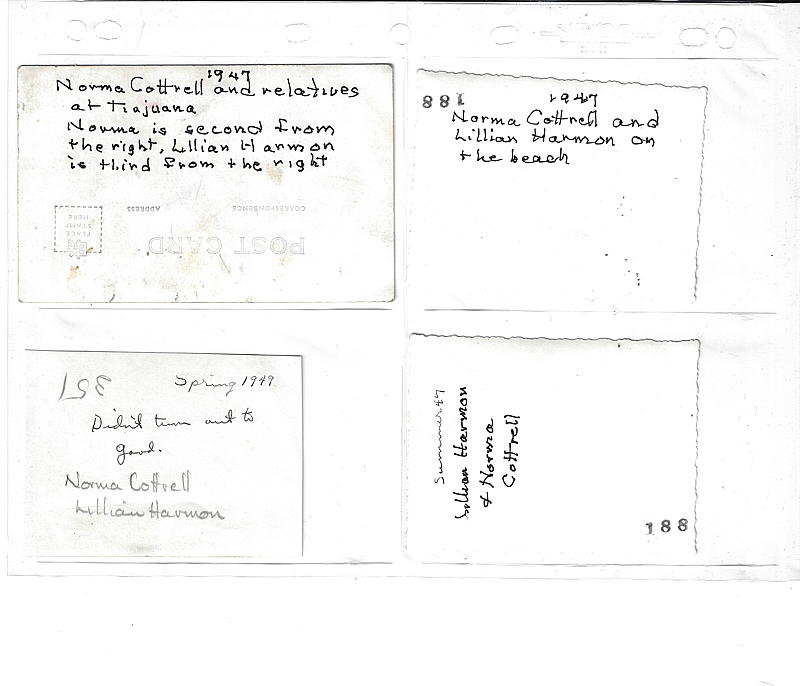 1947
Norma Cottrell and relatives
at Tiajuana
Norma is second from
the right, Lillian Harmon
is third from the right
PLACE
STAMP
HERE
ADDRESS
CORRESPONDENCE
POST CARD
188
1947
Norma Cottrell and
Lillian Harmon on
the beach
351
Spring 1949
Didn't turn out to
good.
Norma Cottrell
Lillian Harmon
Summer 47
Lillian Harmon
& Norma
Cottrell
188